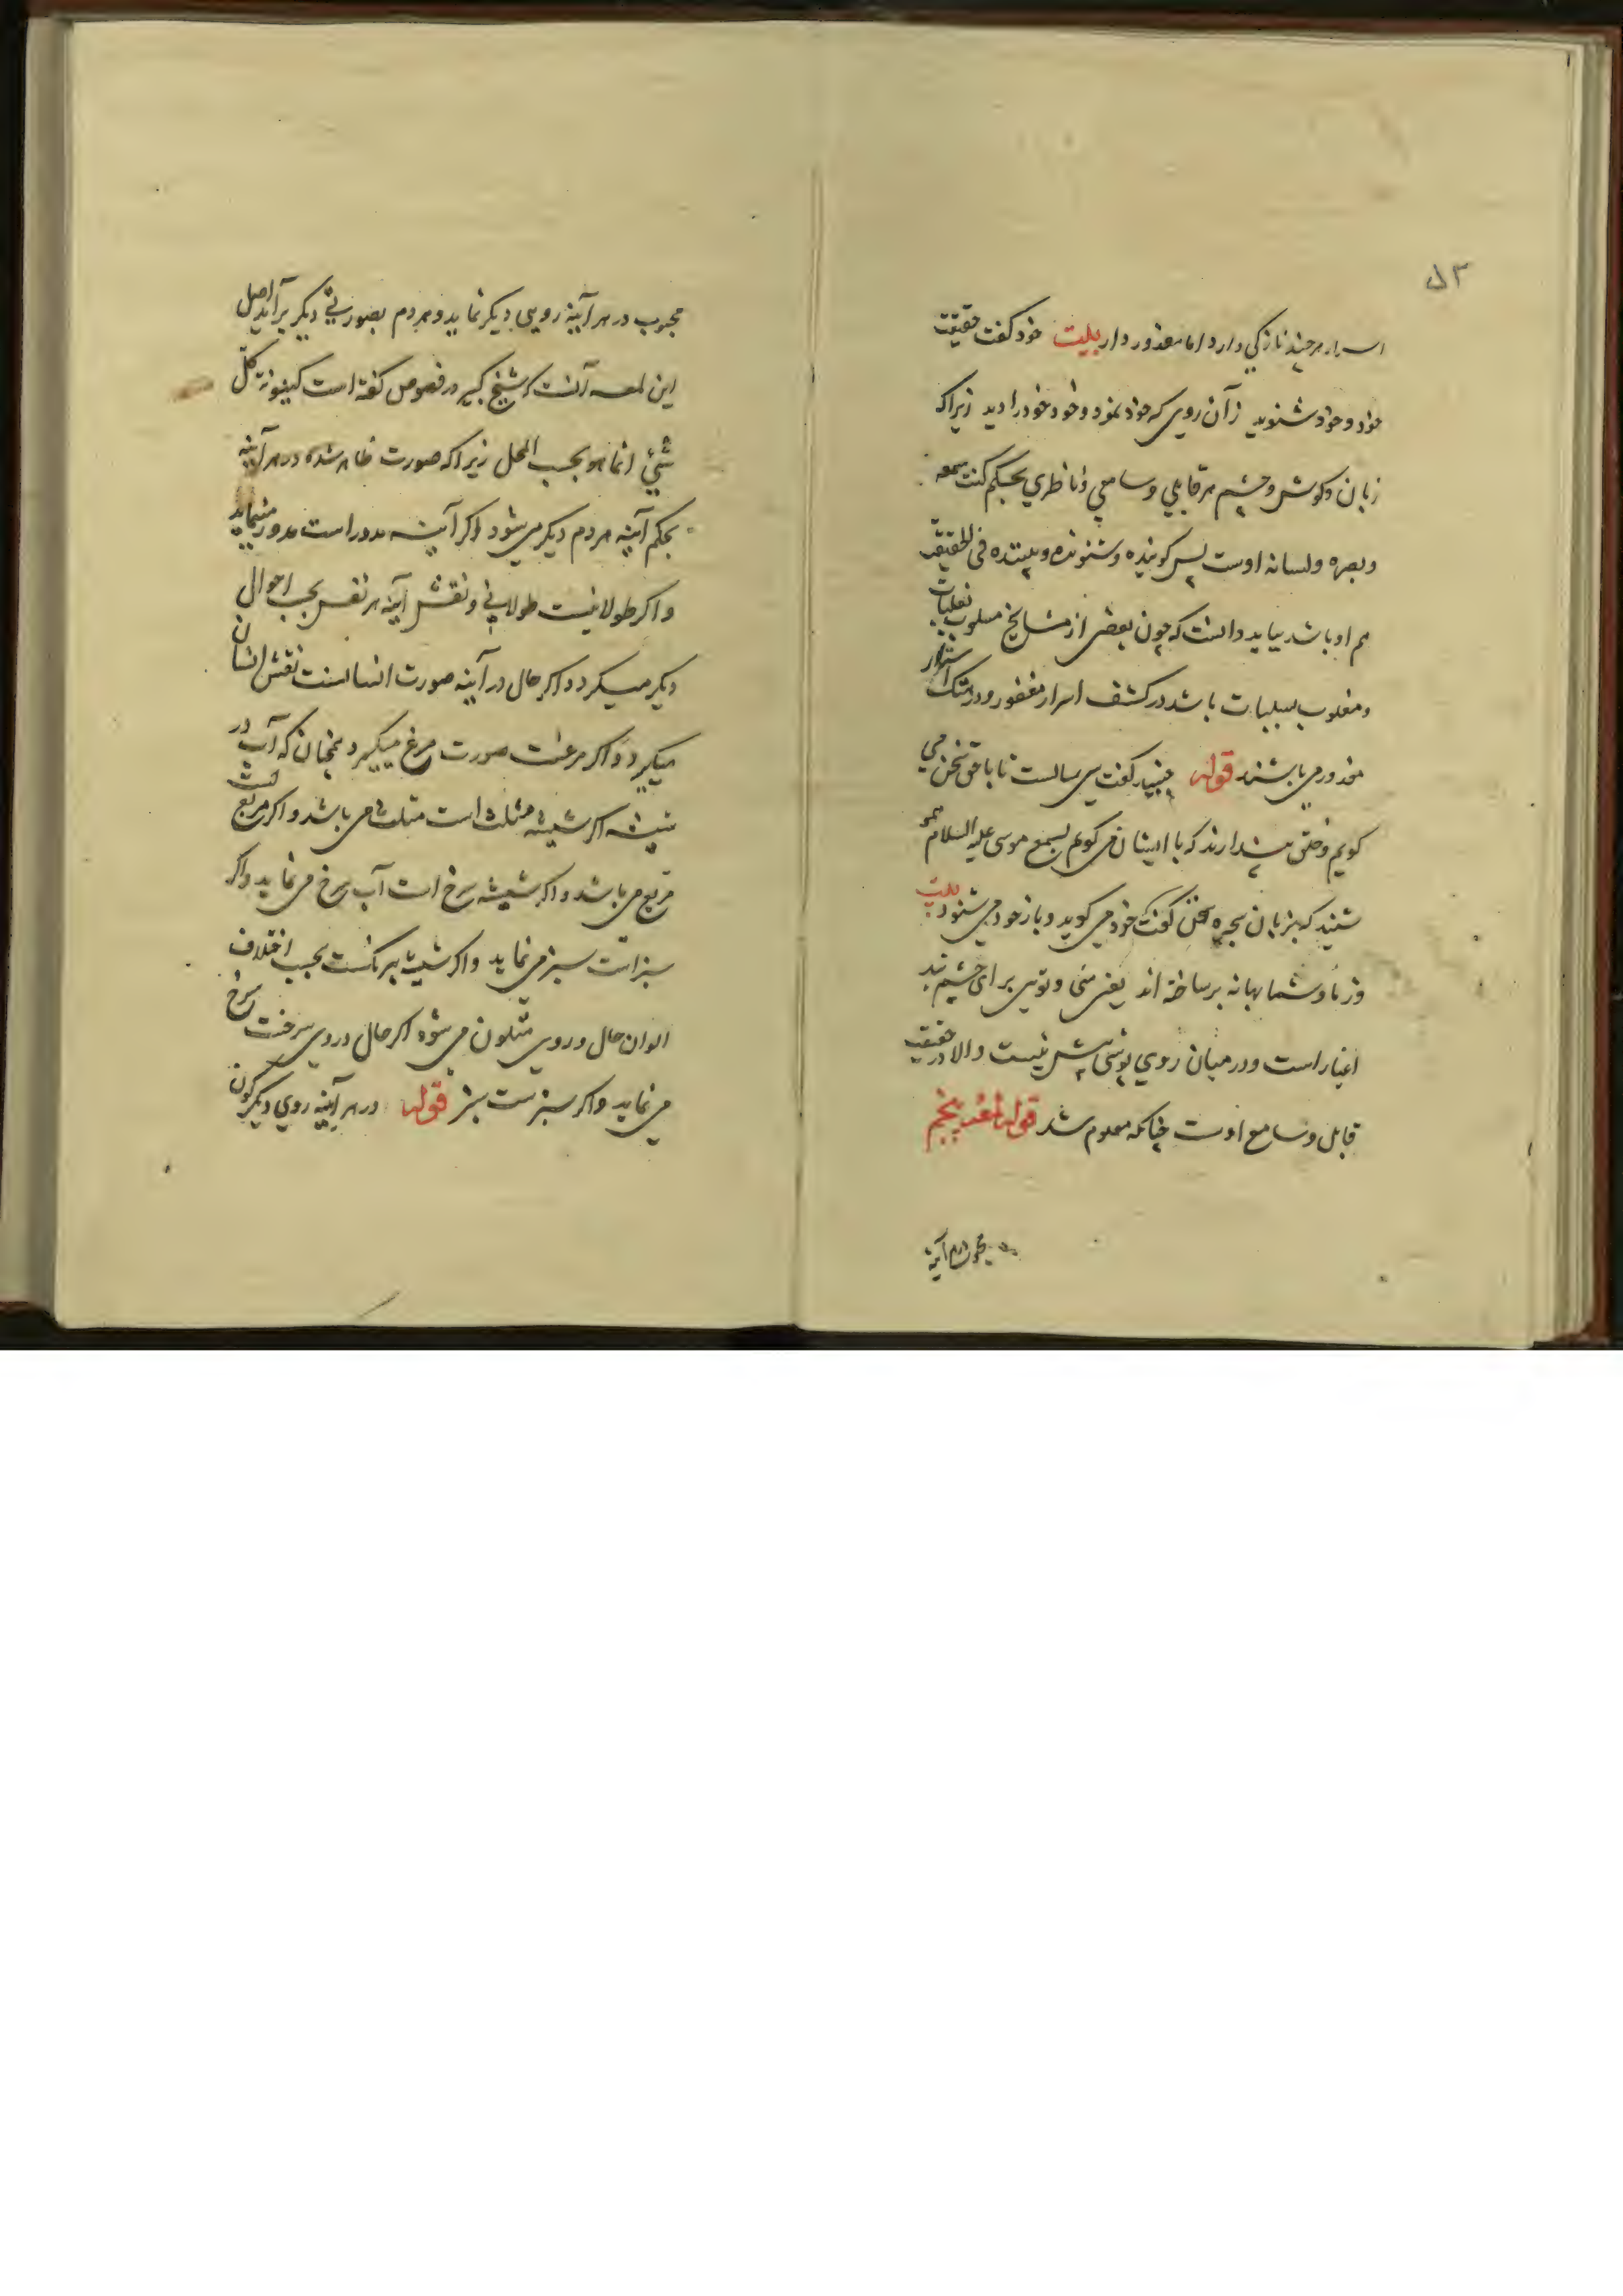 ۵۳
اسرار هرچند نازکی دارد اما معذور دار بیت خود گفت حقیقت
خود و خود شنوید زآن روی که خود نمود و خود خود را دید زیراکه
زبان و کوش و چشم هر قابلی و سامعی و ناظری بحکم کنت سمعه
و بصره و لسانه اوست پس کوینده و شنونده و بیننده فی الحقیقه
هم او باشد بباید دانست که چون بعضی از مشایخ مسلوب
و مغلوب باشد در کشف اسرار و در هتک استار
معذور می باشند قوله جنید کفت سی سالست تا با حق سخن می
کویم و خلق پندارند که با ایشان می کویم بسمع موسی علیه السلام همو
شنید که بزبان شجره سخن کفت خود می کوید و باز خود می شنود بیت
وز ما و شما بهانه بر ساخته اند یعنی منی و تویی برای چشم بند
اغیار است و در میان روی پوشی بیش نیست والا در حقیقت
قایل و سامع اوست چنانکه معلوم شد قوله لمعه پنجم
محبوب در هر آینه
محبوب در هر آینه رویی دیکر نماید و هر دم بصورتی دیکر برآید اصل
این لمعه آنست که شیخ کبیر در فصوص کفته است کینونة کل
شیئ انما هو بحسب المحل زیراکه صورت ظاهر شده در هر آینه
بحکم آینه هر دم دیکر می شود اکر آینه مدور است مدور مینماید
و اکر طولانیست طولانی و نقش آینه هر نفس بحسب احوال
دیکر میکردد اکر حال در آینه صورت انسانست نقش انسان
میکیرد و اکر مرغست صورت مرغ میکیرد همچنان که آب در
شیشه اکر شیشه مثلث است مثلث می باشد و اکر مربع است
مربع می باشد و اکر شیشه سرخ است آب سرخ می نماید و اکر
سبز است سبز می نماید و اکر شیشه بیرنکست بحسب اختلاف
الوان حال در وی متلون می شود اکر حال در وی سرخست سرخ
می نماید و اکر سبزست سبز قوله در هر آینه روی دیکر کون